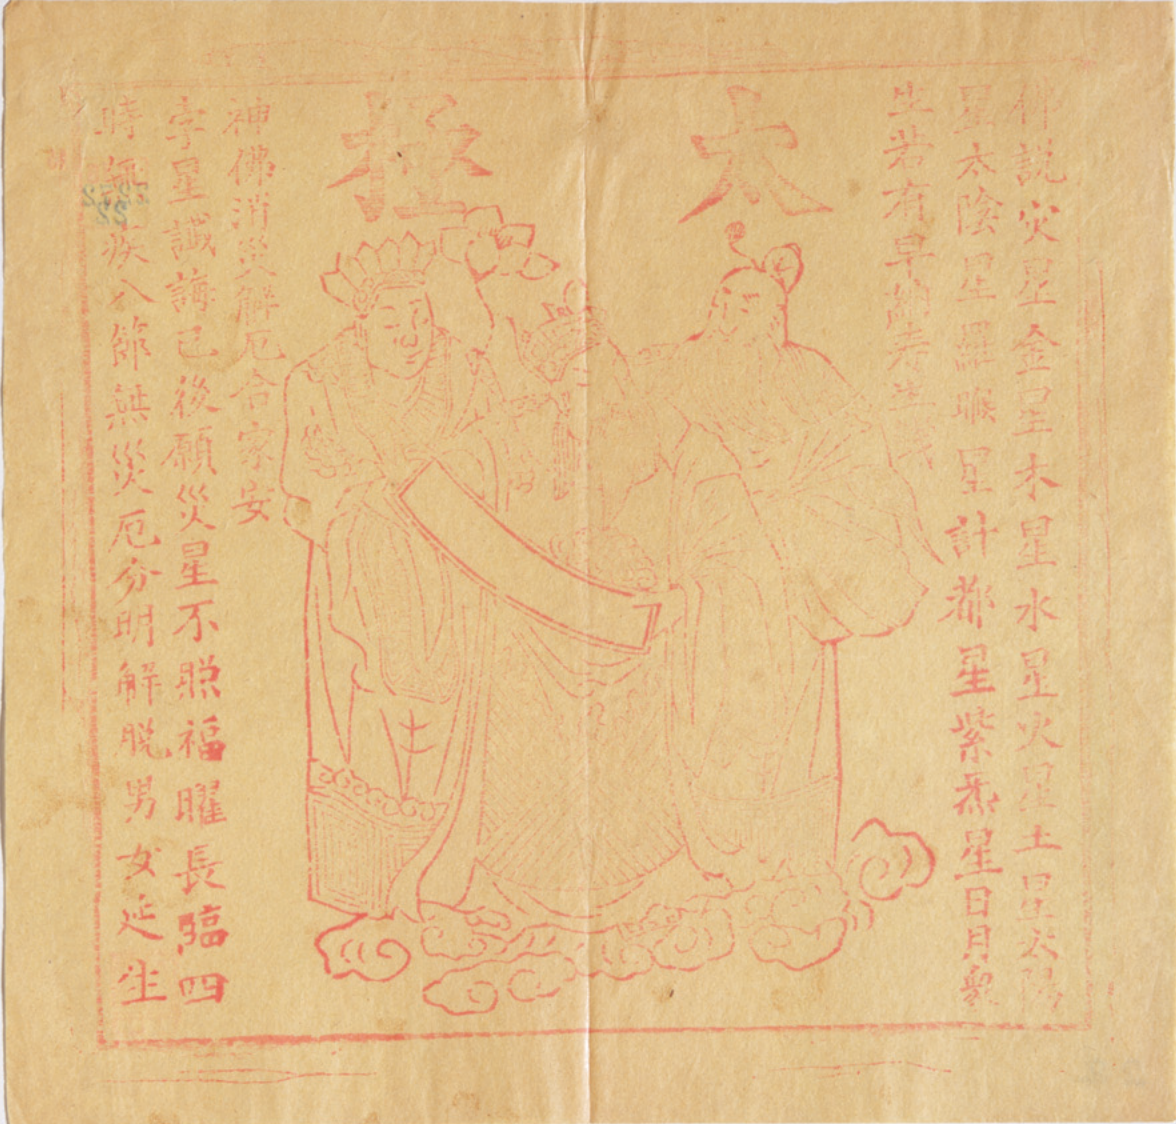 太極
佛説災星金星木星水星火星土星太陽
星太陰星羅睺星計都星紫炁星日月衆
生若有早納寿生
神佛消災解厄合家安
孛星讖誨已後願災星不照福曜長臨四
時無疾八節無災厄夯明解脱男女延生